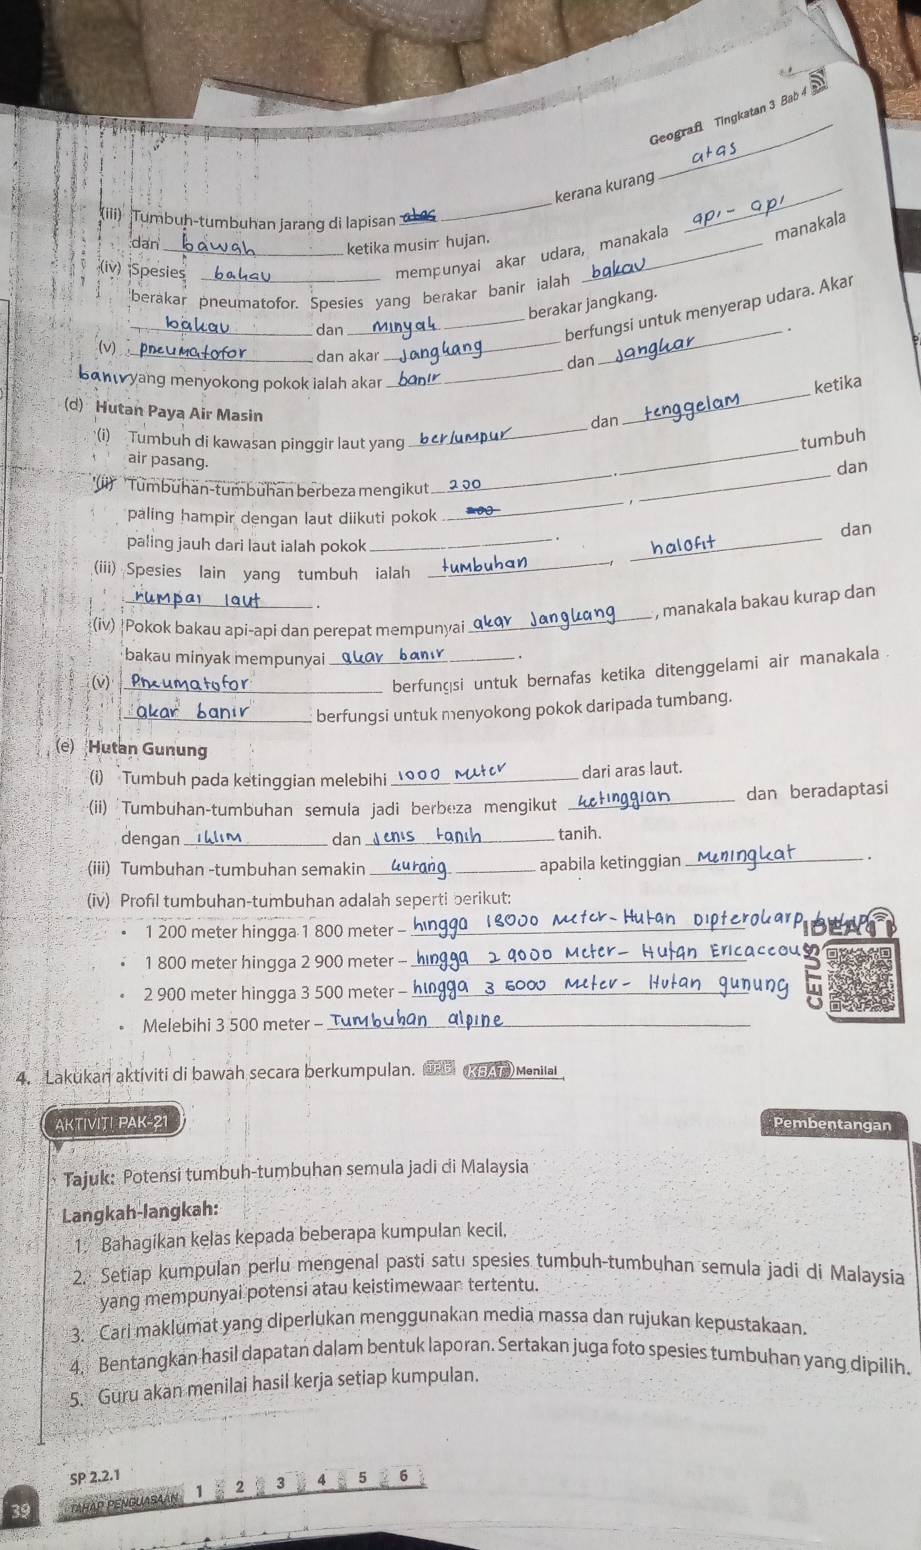 Geografi Tingkatan 3 Bab 4
(iii) Tumbuh-tumbuhan jarang di lapisan kerana kurang atas
dan bawah ketika musim hujan.
(iv) Spesies bakau mempunyai akar udara, manakala api-api
berakar pneumatofor. Spesies yang berakar banir ialah bakau manakala
bakau dan minyak berakar jangkang.
(v) pneumatofor dan akar jangkang berfungsi untuk menyerap udara. Akar
banir yang menyokong pokok ialah akar banir dan jangkar.
(d) Hutan Paya Air Masin
(i) Tumbuh di kawasan pinggir laut yang berlumpur dan tenggelam ketika
air pasang.
(ii) Tumbuhan-tumbuhan berbeza mengikut 200. tumbuh
paling hampir dengan laut diikuti pokok , dan
paling jauh dari laut ialah pokok .
(iii) Spesies lain yang tumbuh ialah tumbuhan, halofit dan
rumpai laut.
(iv) Pokok bakau api-api dan perepat mempunyai akar jangkang, manakala bakau kurap dan
bakau minyak mempunyai akar banir.
(v) Pneumatofor berfungsi untuk bernafas ketika ditenggelami air manakala
akar banir berfungsi untuk menyokong pokok daripada tumbang.
(e) Hutan Gunung
(i) Tumbuh pada ketinggian melebihi 1000 meter dari aras laut.
(ii) Tumbuhan-tumbuhan semula jadi berbeza mengikut ketinggian dan beradaptasi
dengan iklim dan jenis tanih tanih.
(iii) Tumbuhan -tumbuhan semakin kurang apabila ketinggian meningkat.
(iv) Profil tumbuhan-tumbuhan adalah seperti berikut:
• 1 200 meter hingga 1 800 meter – hingga 18000 meter - Hutan Dipterokarp
• 1 800 meter hingga 2 900 meter – hingga 29000 meter - Hutan Ericaccous
• 2 900 meter hingga 3 500 meter – hingga 35000 meter - Hutan gunung
• Melebihi 3 500 meter – Tumbuhan alpine
CETUS
4. Lakukan aktiviti di bawah secara berkumpulan. KBAT Menilai
AKTIVITI PAK-21
Pembentangan
Tajuk: Potensi tumbuh-tumbuhan semula jadi di Malaysia
Langkah-langkah:
1. Bahagikan kelas kepada beberapa kumpulan kecil.
2. Setiap kumpulan perlu mengenal pasti satu spesies tumbuh-tumbuhan semula jadi di Malaysia
yang mempunyai potensi atau keistimewaan tertentu.
3. Cari maklumat yang diperlukan menggunakan media massa dan rujukan kepustakaan.
4. Bentangkan hasil dapatan dalam bentuk laporan. Sertakan juga foto spesies tumbuhan yang dipilih.
5. Guru akan menilai hasil kerja setiap kumpulan.
SP 2.2.1
39 TAHAP PENGUASAAN 1 2 3 4 5 6